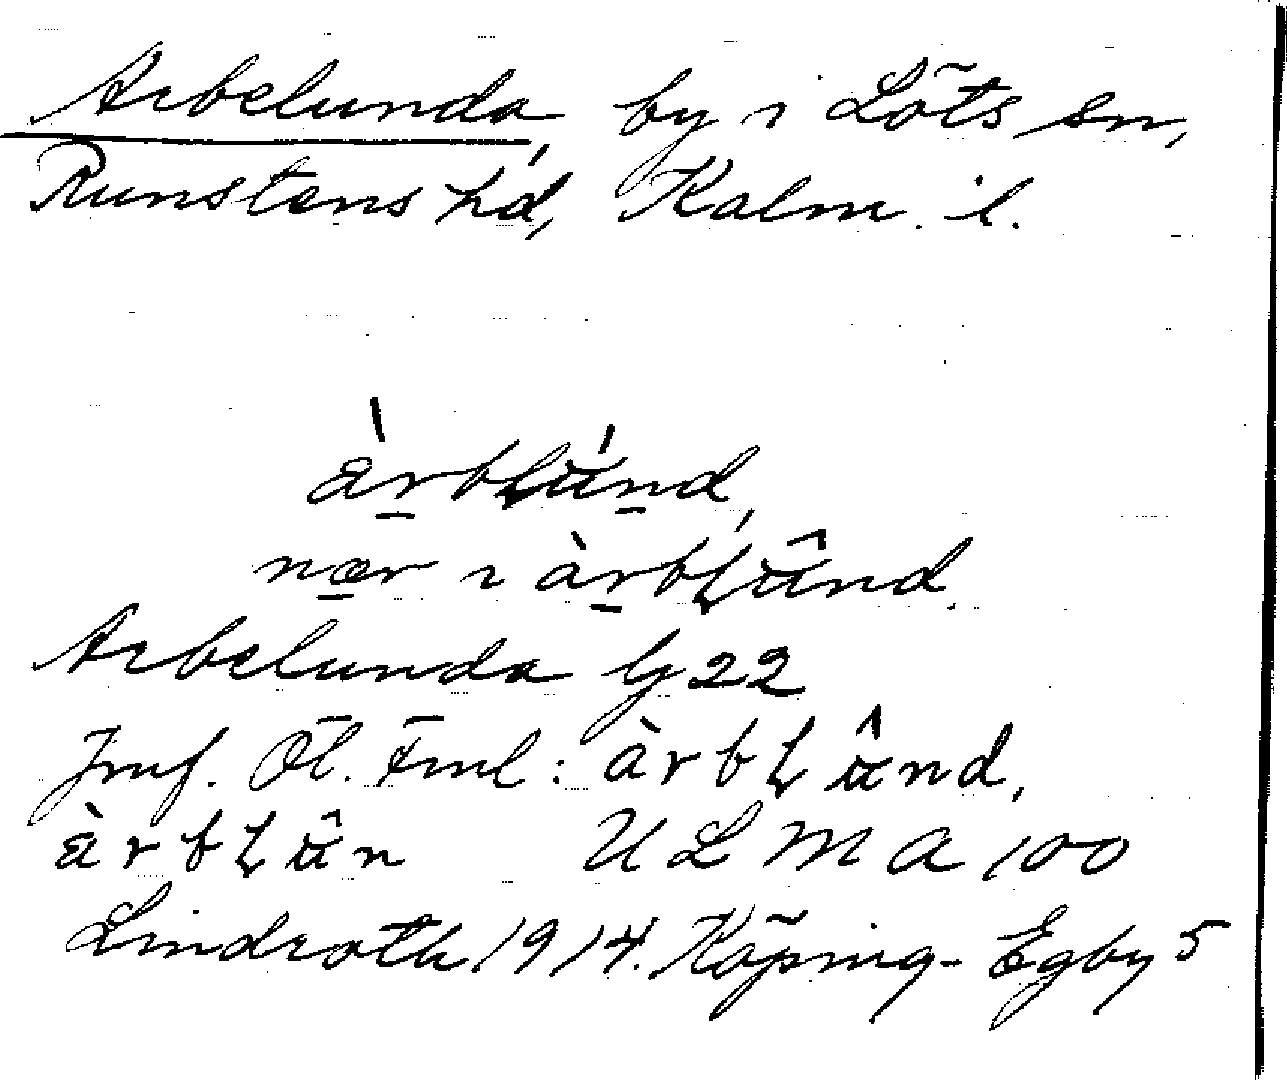 Arbelunda, by i Löts sn,
Runstens hd, Kalm. l.
àrblúnd,
nær i àrblûnd.
Arbelunda G 22
Jmf. Öl. Finl: àrblûnd,
àrblûn ULMA 100
Lindroth 1914. Köping-Egby 5